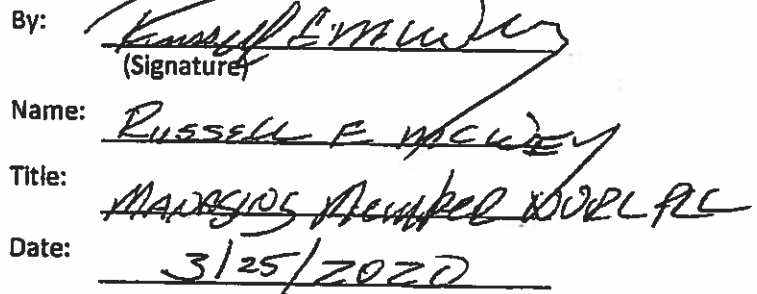 By: Russell E. McWey
(Signature)
Name: Russell E McWEY
Title: Managing Member
Date: 3/25/2020